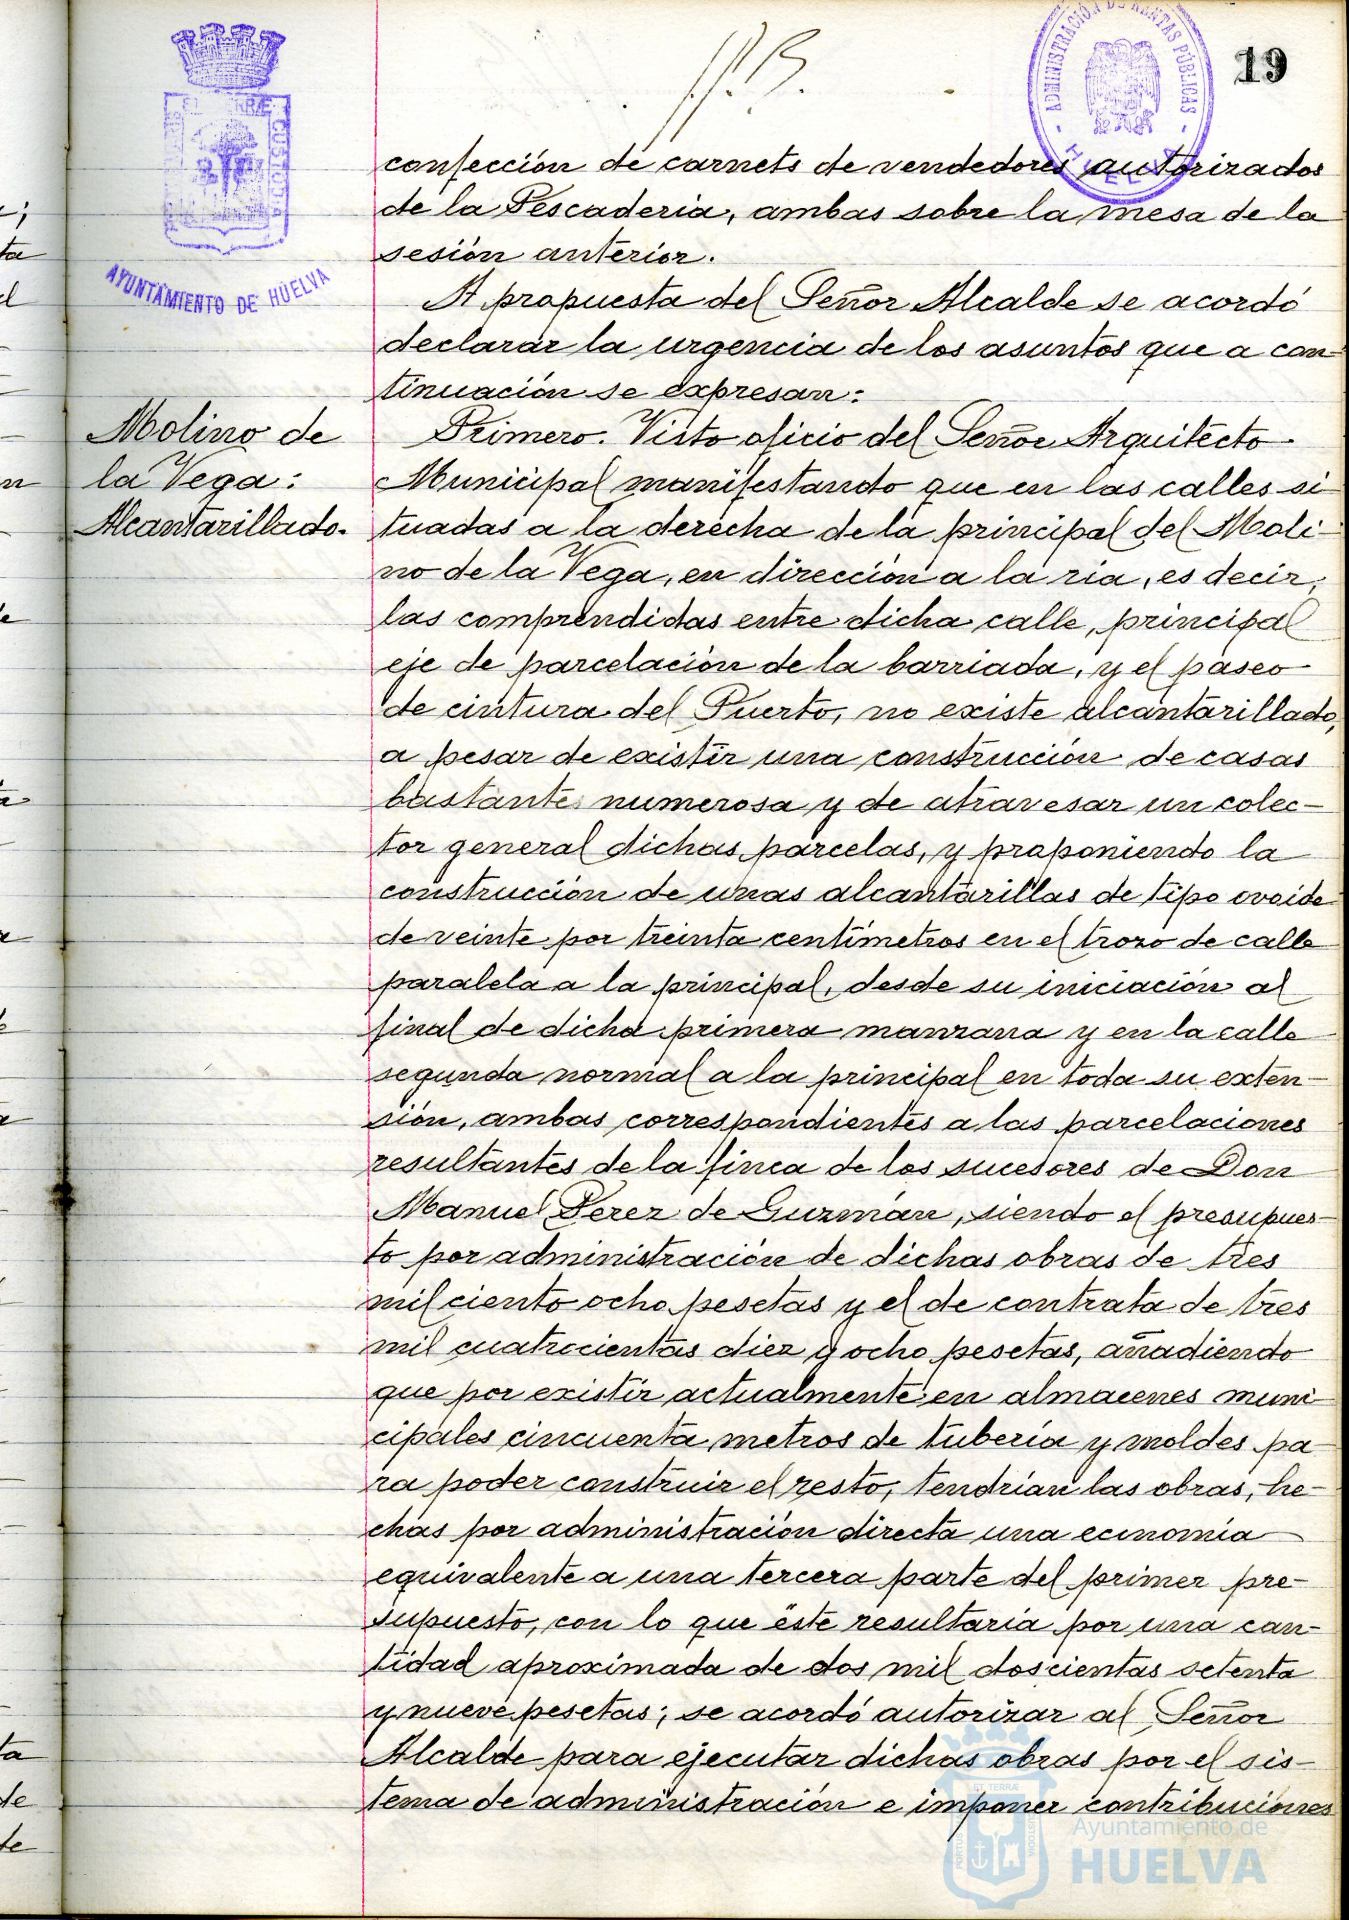 19
ADMINISTRACIÓN DE RENTAS PÚBLICAS
HUELVA
ET TERRÆ
CUSTODIA
AYUNTAMIENTO DE HUELVA
confección de carnets de vendedores autorizados
de la Pescaderia, ambas sobre la mesa de la
sesión anterior.
A propuesta del Señor Alcalde se acordó
declarar la urgencia de los asuntos que a con-
tinuación se expresan:
Molino de
la Vega:
Alcantarillado.
Primero. Visto oficio del Señor Arquitecto
Municipal manifestando que en las calles si-
tuadas a la derecha de la principal del Moli-
no de la Vega, en dirección a la ria, es decir,
las comprendidas entre dicha calle, principal
eje de parcelación de la barriada, y el paseo
de cintura del Puerto, no existe alcantarillado,
a pesar de existir una construcción de casas
bastante numerosa y de atravesar un colec-
tor general dichas parcelas, y proponiendo la
construcción de unas alcantarillas de tipo ovoide
de veinte por treinta centímetros en el trozo de calle
paralela a la principal, desde su iniciación al
final de dicha primera manzana y en la calle
segunda normal a la principal en toda su exten-
sión, ambas correspondientes a las parcelaciones
resultantes de la finca de los sucesores de Don
Manuel Perez de Guzmán, siendo el presupues-
to por administración de dichas obras de tres
mil ciento ocho pesetas y el de contrata de tres
mil cuatrocientas diez y ocho pesetas, añadiendo
que por existir actualmente en almacenes muni-
cipales cincuenta metros de tubería y moldes pa-
ra poder construir el resto, tendrían las obras, he-
chas por administración directa una economía
equivalente a una tercera parte del primer pre-
supuesto, con lo que éste resultaría por una can-
tidad aproximada de dos mil doscientas setenta
y nueve pesetas; se acordó autorizar al Señor
Alcalde para ejecutar dichas obras por el sis-
tema de administración e imponer contribuciones
Ayuntamiento de
HUELVA